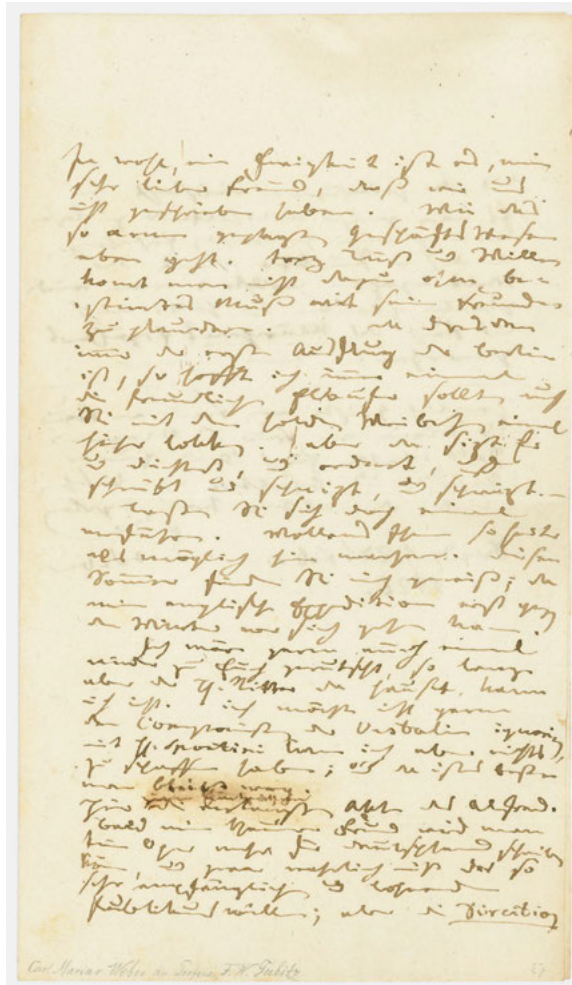 Ja wohl, eine Ewigkeit ist es, mein
sehr lieber Freund, daß wir uns
nicht geschrieben haben. Wie das
so armen geplagten Geschäfts
eben geht. trotz Lust und Willen
komt man nicht dazu
mit seinen Freunden
zu plaudern. Da Dresden
immer der erste Ausflug der Berliner
ist, so hoffte ich immer einmal
die freundliche sollte auch
Sie mit dem holden Weibchen einmal
hieher loken. aber da sizt
und dichtet, und ordnet, und
schreibt und schweigt, und schweigt. –
laßen Sie sich doch einmal
verführen. Wollens Ihnen so
als möglich hier machen. diesen
Sommer finden Sie mich gewiß; da
meine englische Expedition erst gegen
den Winter vor sich gehen kann.
Ich wäre gerne auch einmal
wieder zu Euch gerutscht, so lange
aber der H: Ritter da haußt, kann
ich nicht. ich möchte nicht gerne
den Componist der Vestalin ignoriren,
mit H. Spontini kann ich aber nichts
zu schaffen haben; und da ists besten
man bleibt weg.
Akt des Alfons.
bald mein Freund wird man
keine Oper mehr für Deutschland schreiben
können, und zwar wahrlich nicht des so
sehr empfänglichen und lohnenden
Publikums willen; aber die Direction
Carl Maria v Weber an F. W. Gubitz